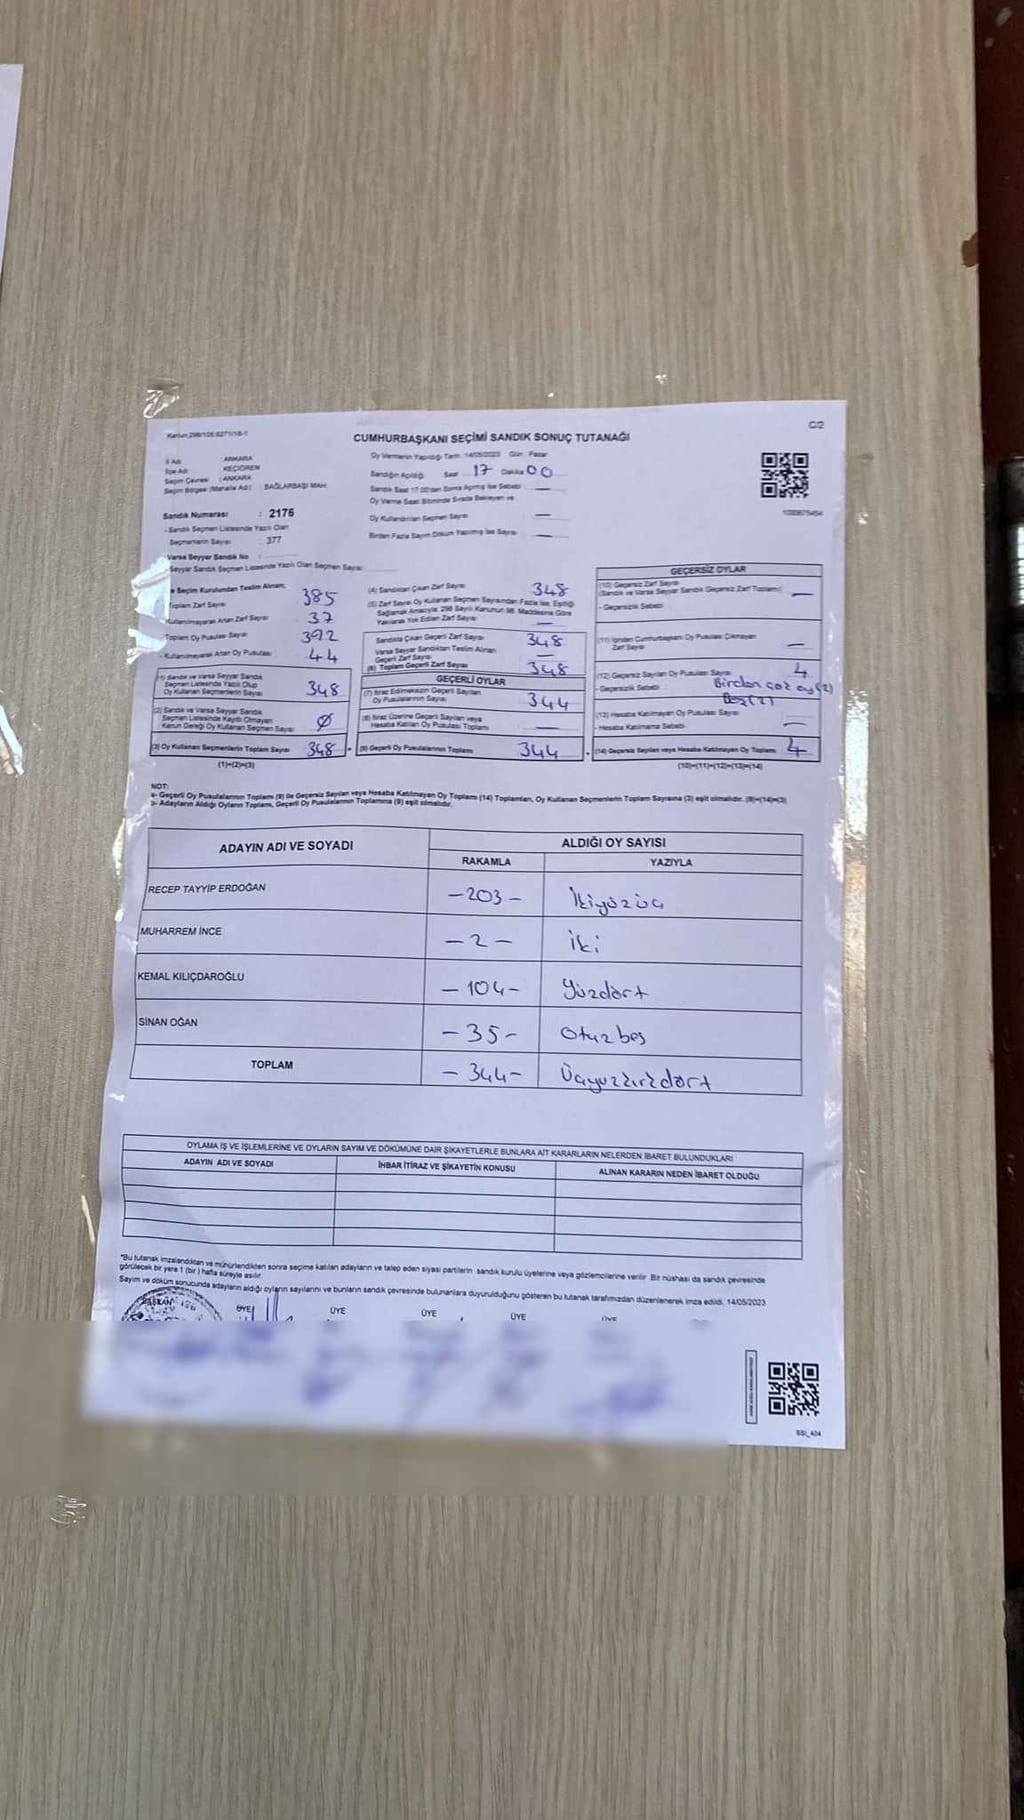 Kanun 298/105 6271/18-1
C/2
CUMHURBAŞKANI SEÇİMİ SANDIK SONUÇ TUTANAĞI
İl Adı : ANKARA
İlçe Adı : KEÇİÖREN
Seçim Çevresi : ANKARA
Seçim Bölgesi (Mahalle Adı) : BAĞLARBAŞI MAH.
Sandık Numarası : 2176
- Sandık Seçmen Listesinde Yazılı Olan
Seçmenlerin Sayısı : 377
Varsa Seyyar Sandık No :
Seyyar Sandık Seçmen Listesinde Yazılı Olan Seçmen Sayısı :
Oy Vermenin Yapıldığı Tarih : 14/05/2023 Gün : Pazar
Sandığın Açıldığı Saat : 17 Dakika 00
Sandık Saat 17.00'den Sonra Açılmış İse Sebebi : —
Oy Verme Saati Bitiminde Sırada Bekleyen ve
Oy Kullandırılan Seçmen Sayısı —
Birden Fazla Sayım Döküm Yapılmış İse Sayısı : —
e Seçim Kurulundan Teslim Alınan;
Toplam Zarf Sayısı 385
Kullanılmayarak Artan Zarf Sayısı 37
Toplam Oy Pusulası Sayısı 392
- Kullanılmayarak Artan Oy Pusulası 44
(1) Sandık ve Varsa Seyyar Sandık
Seçmen Listesinde Yazılı Olup
Oy Kullanan Seçmenlerin Sayısı 348
(2) Sandık ve Varsa Seyyar Sandık
Seçmen Listesinde Kayıtlı Olmayan
Kanun Gereği Oy Kullanan Seçmen Sayısı Ø
(3) Oy Kullanan Seçmenlerin Toplam Sayısı 348
(1)+(2)=(3)
(4) Sandıktan Çıkan Zarf Sayısı 348
(5) Zarf Sayısı Oy Kullanan Seçmen Sayısından Fazla İse, Eşitliği
Sağlamak Amacıyla; 298 Sayılı Kanunun 98. Maddesine Göre
Yakılarak Yok Edilen Zarf Sayısı —
Sandıkta Çıkan Geçerli Zarf Sayısı 348
Varsa Seyyar Sandıktan Teslim Alınan
Geçerli Zarf Sayısı —
(6) Toplam Geçerli Zarf Sayısı 348
GEÇERLİ OYLAR
(7) İtiraz Edilmeksizin Geçerli Sayılan
Oy Pusulalarının Sayısı 344
(8) İtiraz Üzerine Geçerli Sayılan veya
Hesaba Katılan Oy Pusulaları Toplamı —
(9) Geçerli Oy Pusulalarının Toplamı 344
GEÇERSİZ OYLAR
(10) Geçersiz Zarf Sayısı
(Sandık ve Varsa Seyyar Sandık Geçersiz Zarf Toplamı) —
- Geçersizlik Sebebi
(11) İçinden Cumhurbaşkanı Oy Pusulası Çıkmayan
Zarf Sayısı —
(12) Geçersiz Sayılan Oy Pusulası Sayısı 4
- Geçersizlik Sebebi Birden çok oy (2)
Boş (2)
(13) Hesaba Katılmayan Oy Pusulası Sayısı —
- Hesaba Katılmama Sebebi
(14) Geçersiz Sayılan veya Hesaba Katılmayan Oy Toplamı 4
(10)+(11)+(12)+(13)=(14)
NOT:
a- Geçerli Oy Pusulalarının Toplamı (9) ile Geçersiz Sayılan veya Hesaba Katılmayan Oy Toplamı (14) Toplamları, Oy Kullanan Seçmenlerin Toplam Sayısına (3) eşit olmalıdır. (9)+(14)=(3)
b- Adayların Aldığı Oyların Toplamı, Geçerli Oy Pusulalarının Toplamına (9) eşit olmalıdır.
ADAYIN ADI VE SOYADI
ALDIĞI OY SAYISI
RAKAMLA YAZIYLA
RECEP TAYYİP ERDOĞAN -203- İkiyüzüç
MUHARREM İNCE -2- iki
KEMAL KILIÇDAROĞLU -104- Yüzdört
SİNAN OĞAN -35- Otuzbeş
TOPLAM -344- Üçyüzkırkdört
OYLAMA İŞ VE İŞLEMLERİNE VE OYLARIN SAYIM VE DÖKÜMÜNE DAİR ŞİKAYETLERLE BUNLARA AİT KARARLARIN NELERDEN İBARET BULUNDUKLARI
ADAYIN ADI VE SOYADI İHBAR İTİRAZ VE ŞİKAYETİN KONUSU ALINAN KARARIN NEDEN İBARET OLDUĞU
*Bu tutanak imzalandıktan ve mühürlendikten sonra seçime katılan adayların ve talep eden siyasi partilerin sandık kurulu üyelerine veya gözlemcilerine verilir. Bir nüshası da sandık çevresinde
görülecek bir yere 1 (bir) hafta süreyle asılır.
Sayım ve döküm sonucunda adayların aldığı oyların sayılarını ve bunların sandık çevresinde bulunanlara duyurulduğunu gösteren bu tutanak tarafımızdan düzenlenerek imza edildi. 14/05/2023
BAŞKAN ÜYE ÜYE ÜYE ÜYE ÜYE
SSI_424